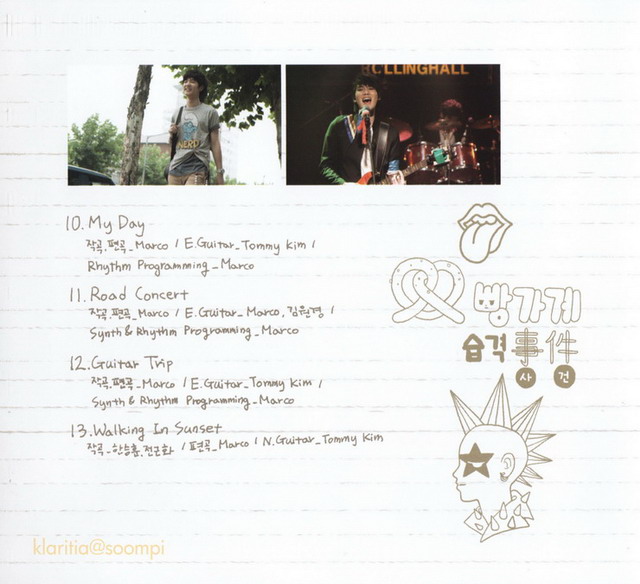 BOLLINGHALL
NERD
10. My Day
작곡.편곡_Marco / E.Guitar_Tommy Kim /
Rhythm Programming_Marco
11. Road Concert
작곡.편곡_Marco / E.Guitar_Marco, 김원경 /
Synth & Rhythm Programming_Marco
12. Guitar Trip
작곡.편곡_Marco / E.Guitar_Tommy Kim /
Synth & Rhythm Programming_Marco
13. Walking In Sunset
작곡_한승훈.전근화 / 편곡_Marco / N.Guitar_Tommy Kim
빵가게
습격事件
사 건
klaritia@soompi